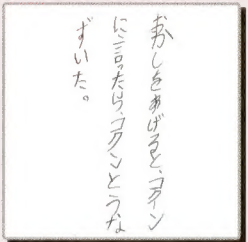 おかしをあげると、コクン
に言ったら、コクンとうな
ずいた。